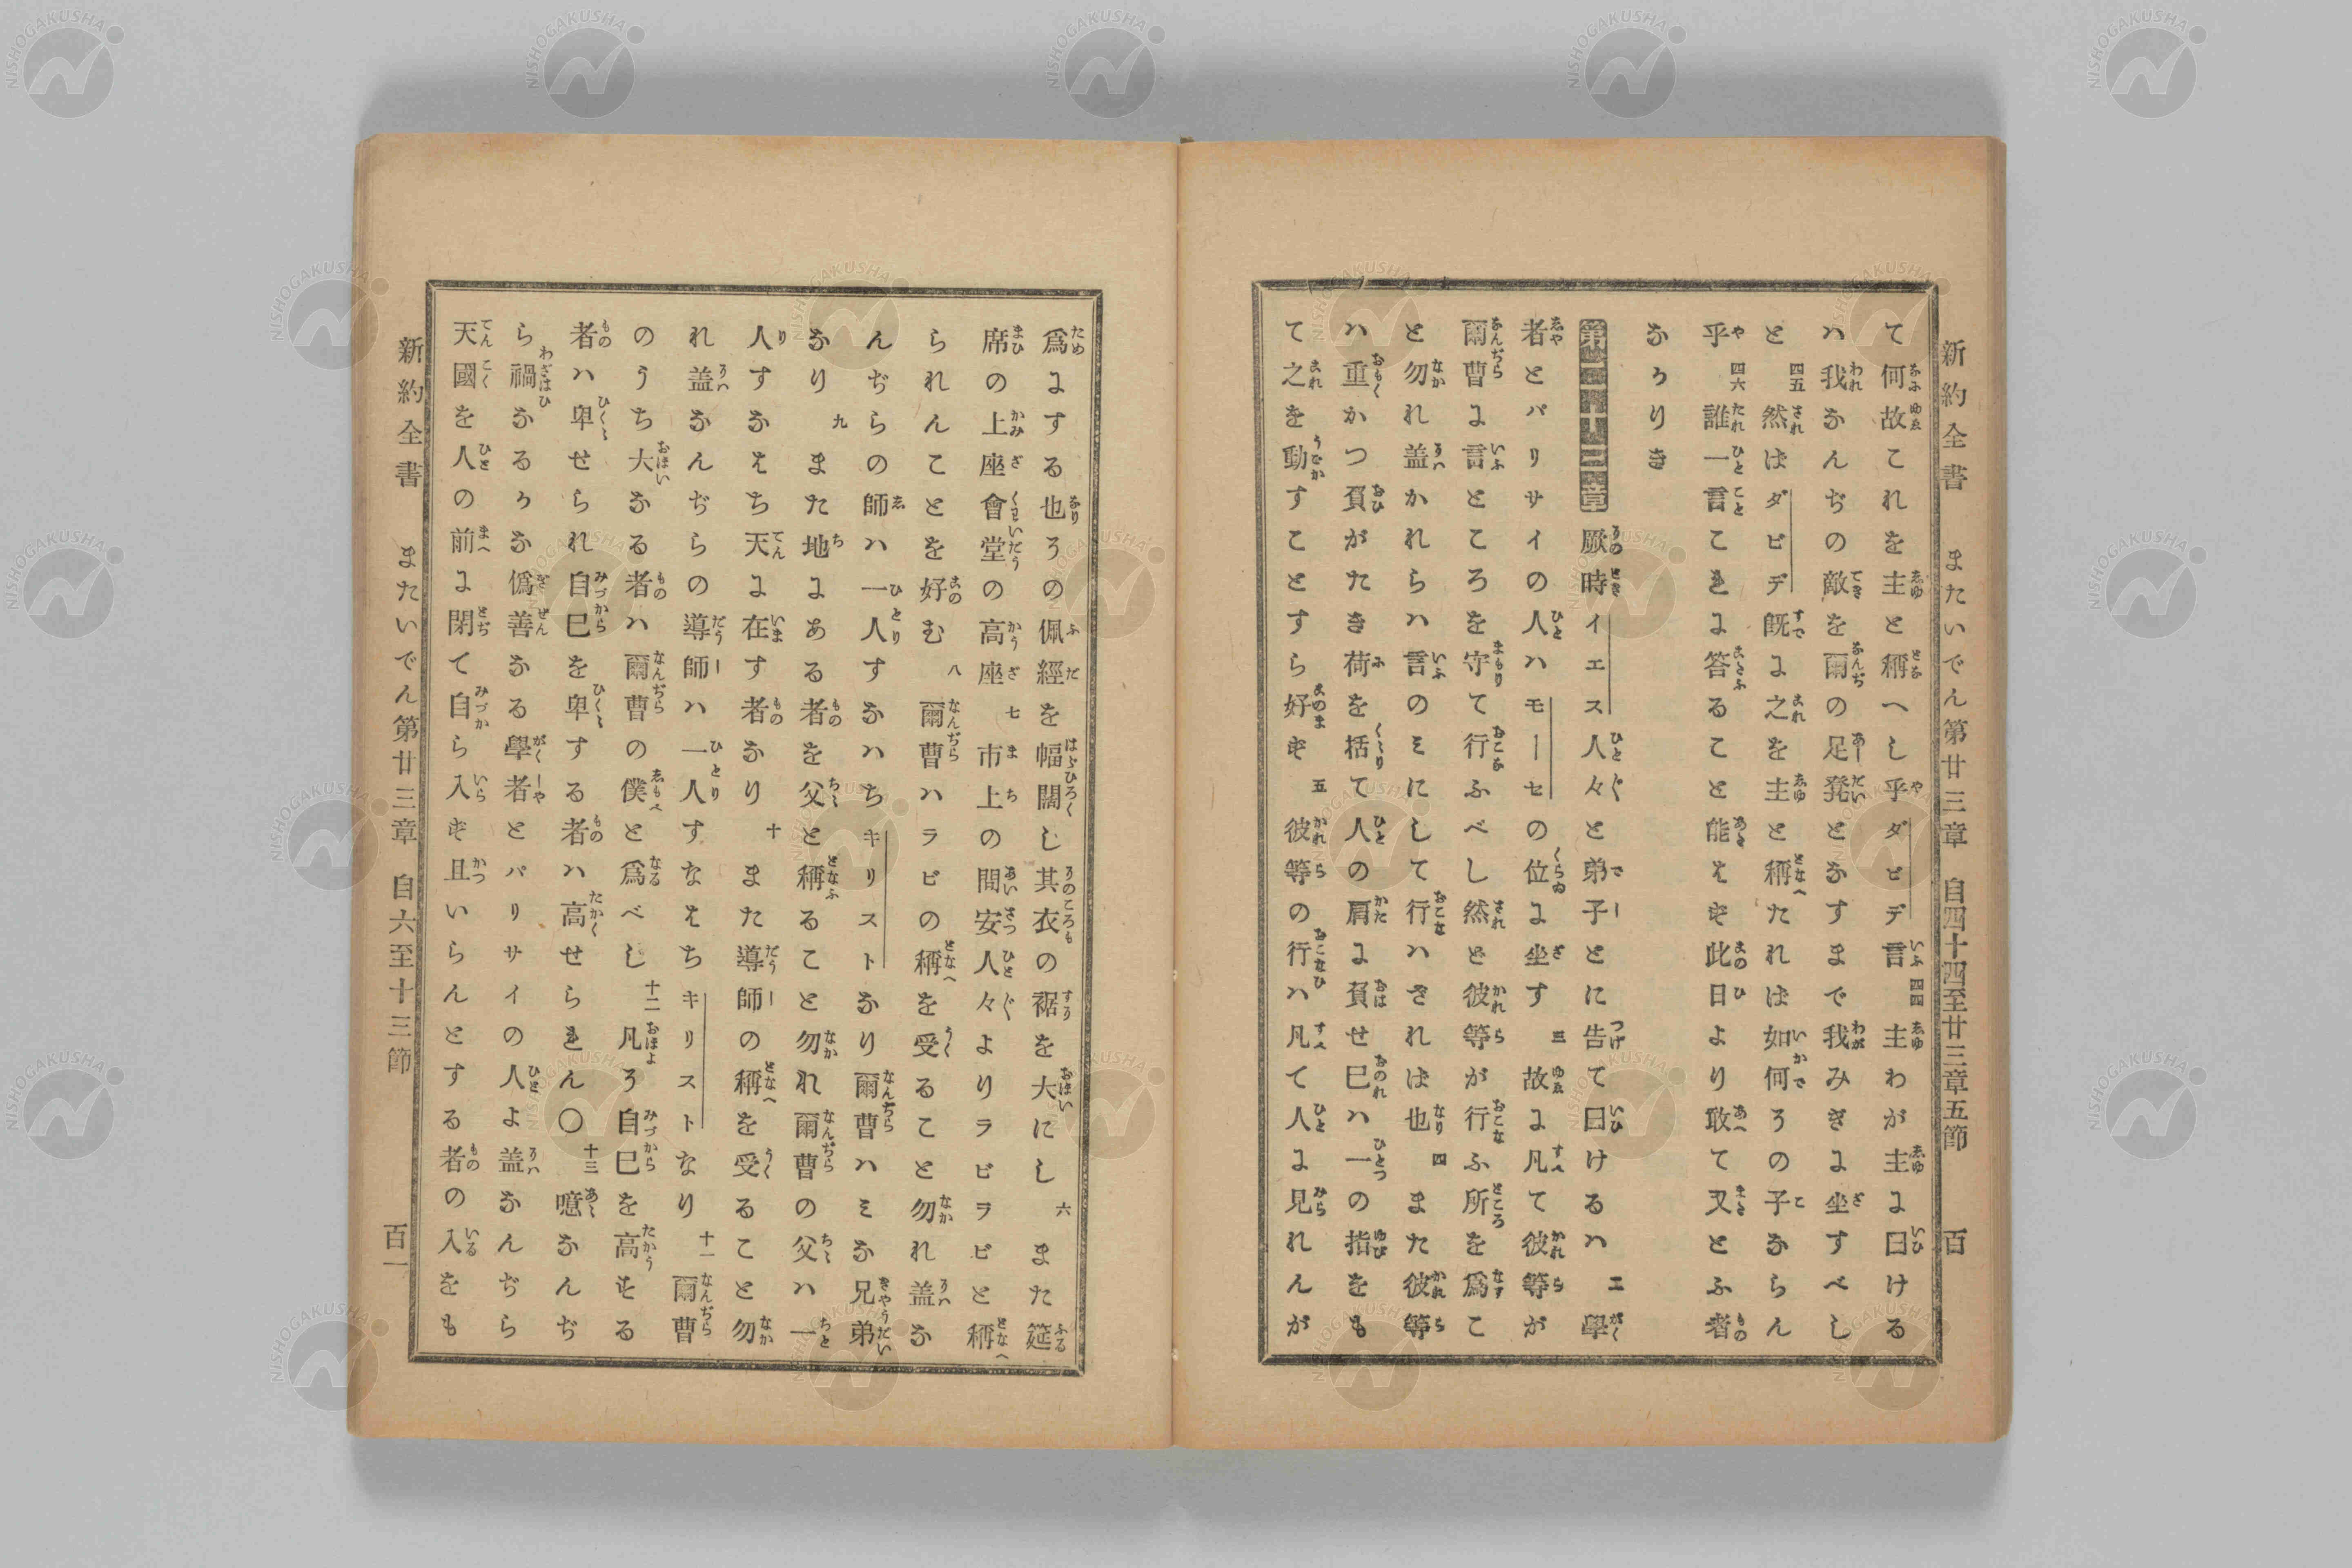 新約全書 またいでん第廿三章 自四十四至廿三章五節 百
て何故これを主と稱へし乎ダビデ言 四四 主わが主に曰ける
ハ我なんぢの敵を爾の足凳となすまで我みぎに坐すべし
と 四五 然ばダビデ既に之を主と稱たれば如何その子ならん
乎 四六 誰一言これに答ること能はず此日より敢て又とふ者
なかりき
第二十三章 厥時イエス人々と弟子とに告て曰けるハ 二 學
者とパリサイの人ハモーセの位に坐す 三 故に凡て彼等が
爾曹に言ところを守て行ふべし然ど彼等が行ふ所を爲こ
と勿れ蓋かれらハ言のミにして行ハざれば也 四 また彼等
ハ重かつ負がたき荷を括て人の肩に負せ己ハ一の指をも
て之を動すことすら好ず 五 彼等の行ハ凡て人に見れんが
爲にする也その佩經を幅闊し其衣の裾を大にし 六 また筵
席の上座會堂の高座 七 市上の間安人々よりラビラビと稱
られんことを好む 八 爾曹ハラビの稱を受ること勿れ蓋な
んぢらの師ハ一人すなハちキリストなり爾曹ハミな兄弟
なり 九 また地にある者を父と稱ること勿れ爾曹の父ハ一
人すなはち天に在す者なり 十 また導師の稱を受ること勿
れ蓋なんぢらの導師ハ一人すなはちキリストなり 十一 爾曹
のうち大なる者ハ爾曹の僕と爲べし 十二 凡そ自己を高する
者ハ卑せられ自己を卑する者ハ高せられん〇 十三 噫なんぢ
ら禍なるかな僞善なる學者とパリサイの人よ蓋なんぢら
天國を人の前に閉て自ら入ず且いらんとする者の入をも
新約全書 またいでん第廿三章 自六至十三節 百一
NISHOGAKUSHA